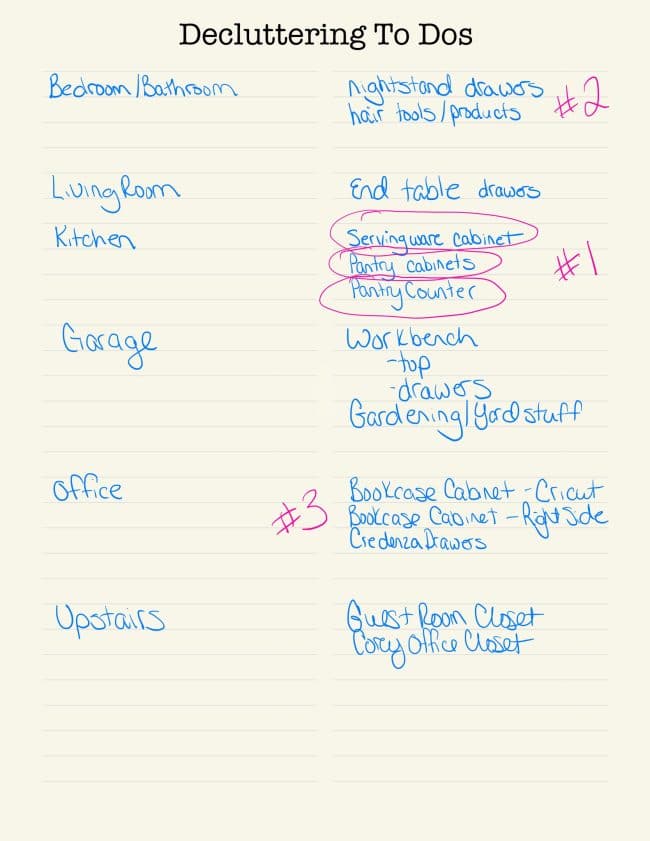 Decluttering To Dos
Bedroom/Bathroom
nightstand drawers
hair tools/products
#2
Living Room
End table drawers
Kitchen
Servingware cabinet
Pantry cabinets
Pantry Counter
#1
Garage
Workbench
-top
-drawers
Gardening/Yard stuff
Office
#3
Bookcase Cabnet - Cricut
Bookcase Cabinet - Right Side
Credenza Drawers
Upstairs
Guest Room Closet
Corey Office Closet